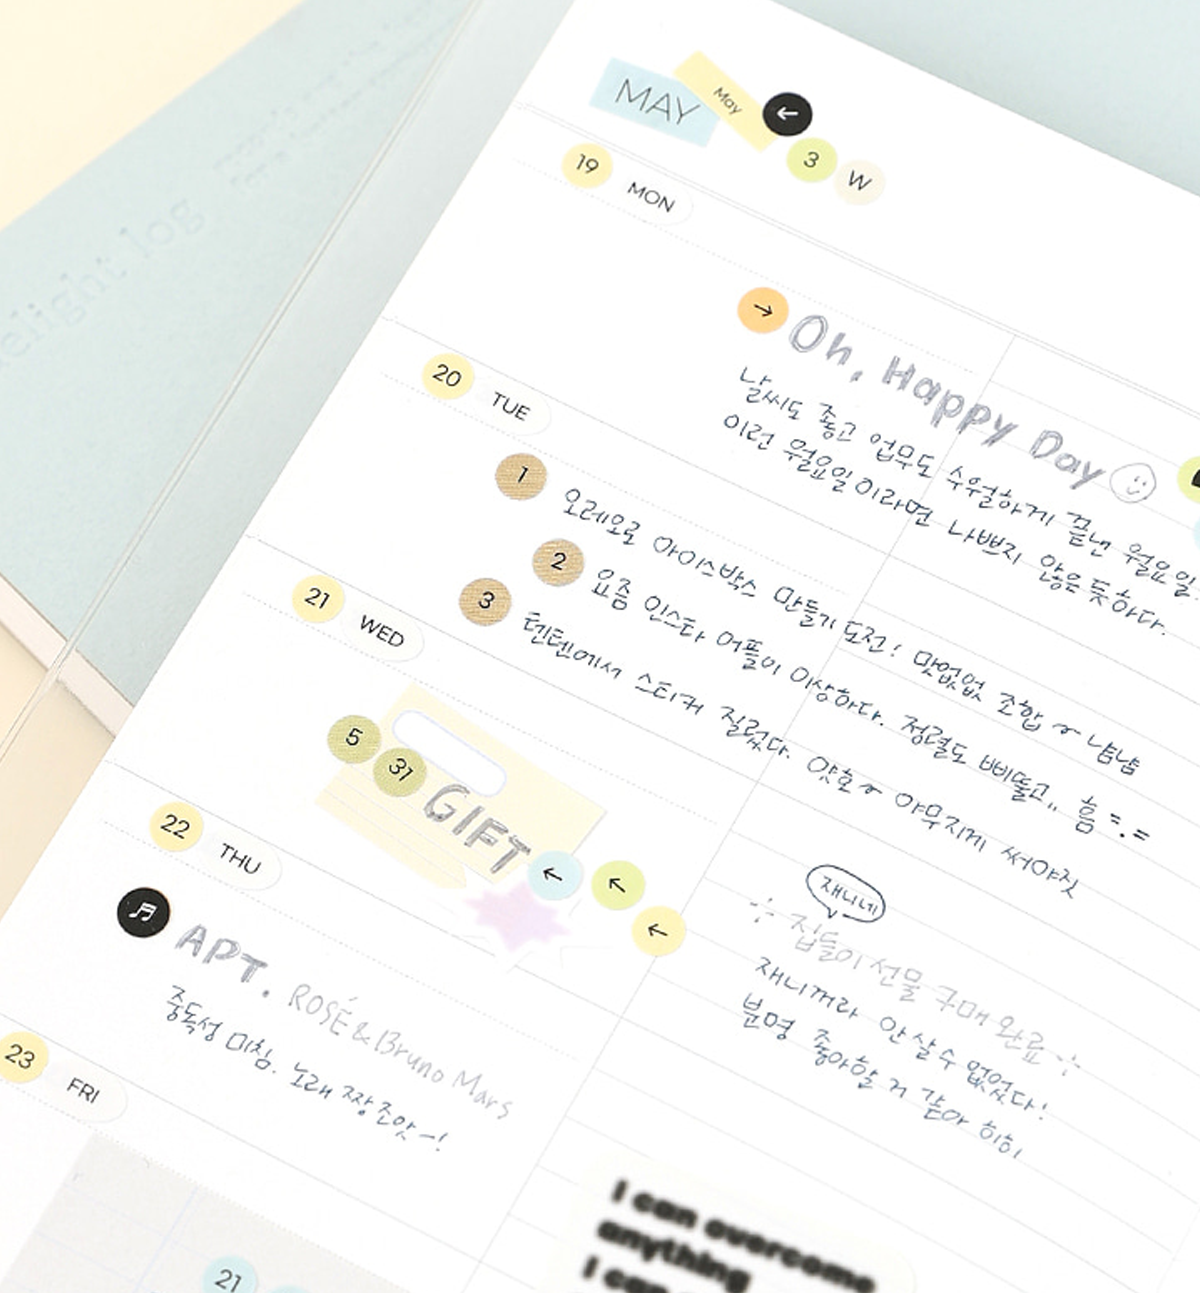 MAY
May
←
3
W
19 MON
→ Oh, Happy Day
날씨도 좋고 업무도 수월하게 끝낸 월요일.
이런 월요일이라면 나쁘지 않은 듯하다.
20 TUE
1 오레오로 아이스박스 만들기 도전! 맛없없 조합~ 냠냠
2 요즘 인스타 어플이 이상하다. 정렬도 삐뚤고.. 흠
3 텐텐에서 스티커 질렀다. 얏호~ 야무지게 써야짓
21 WED
5 31
GIFT
← ↖ ←
재니네
집들이 선물 구매 완료
재니꺼라 안 살 수 없었다!
분명 좋아할 거 같아 히히
22 THU
APT. ROSÉ & Bruno Mars
중독성 미침. 노래 짱 좋앗~!
23 FRI
21
I can overcome
anything
I can
elight log